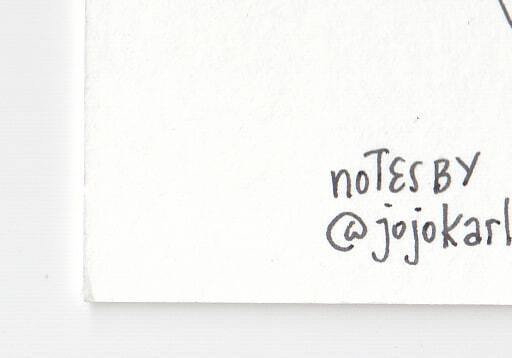 noTES BY
@jojokarl